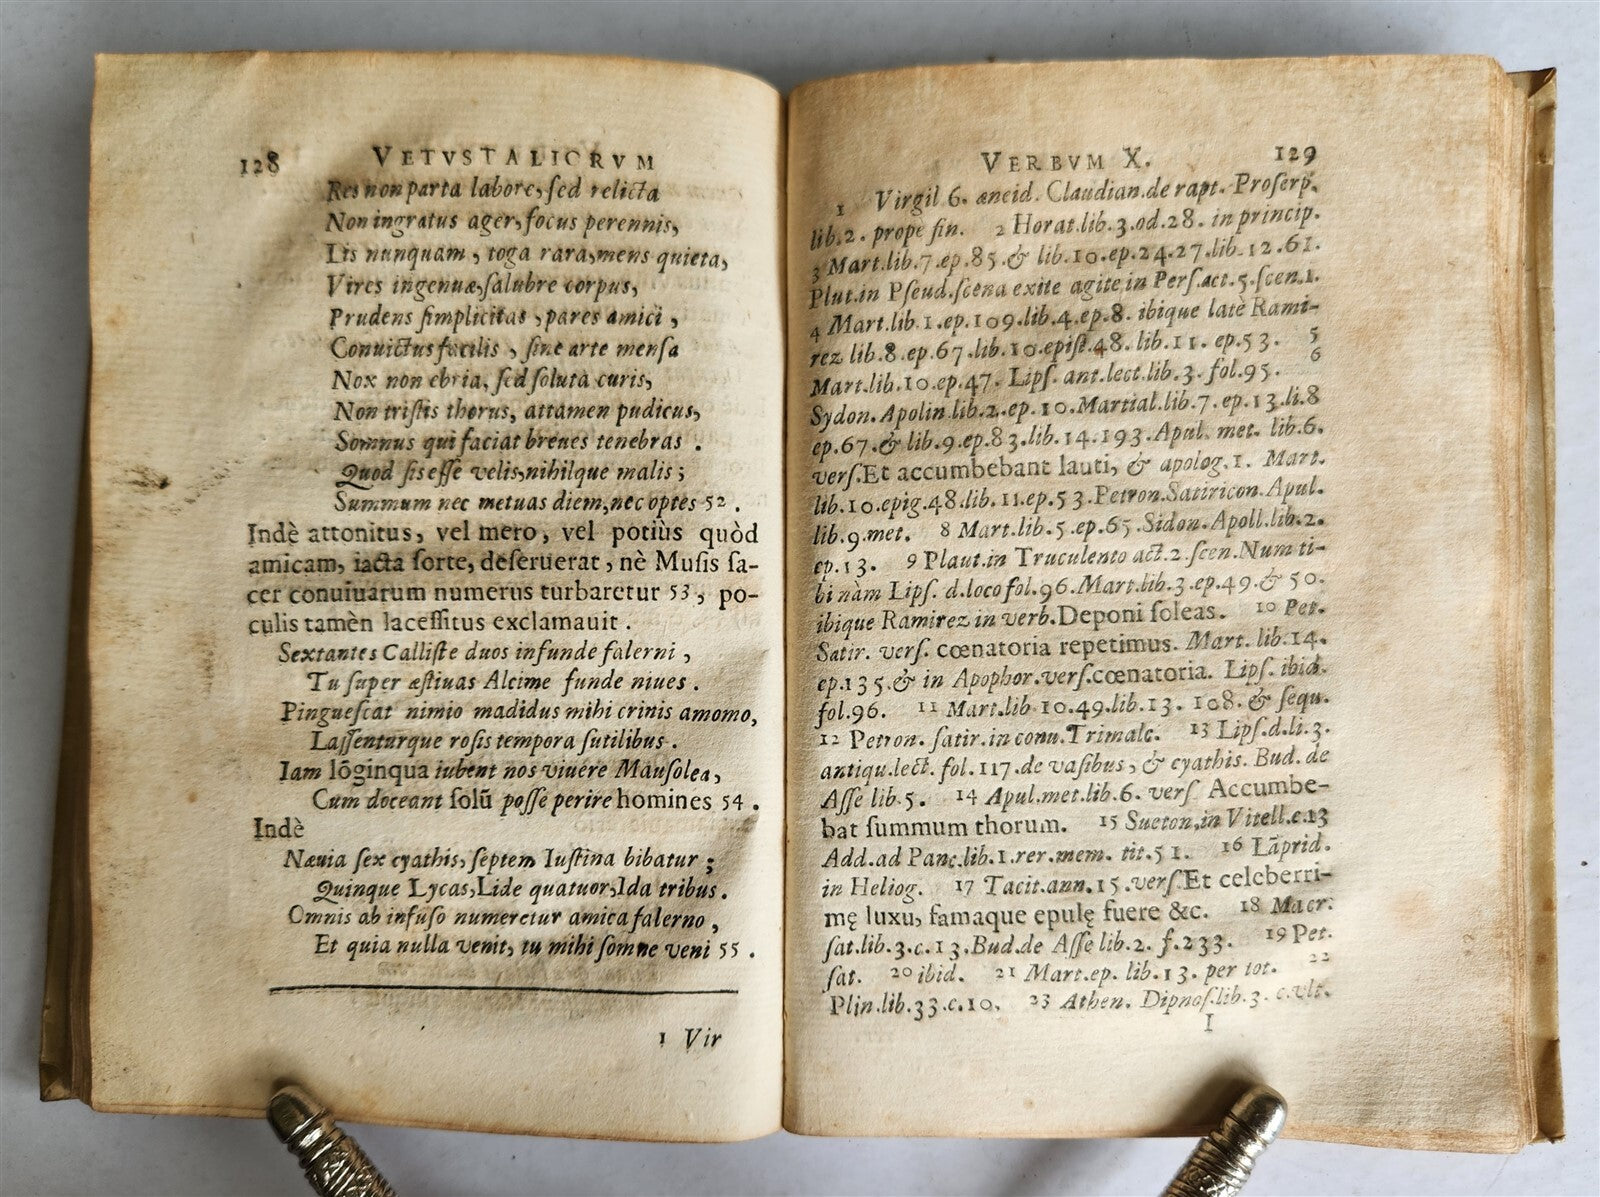 128 VETVSTALIORVM
Res non parta labore, sed relicta
Non ingratus ager, focus perennis,
Lis nunquam, toga rara, mens quieta,
Vires ingenuæ, salubre corpus,
Prudens simplicitas, pares amici,
Conuictus facilis, sine arte mensa
Nox non ebria, sed soluta curis,
Non tristis thorus, attamen pudicus,
Somnus qui faciat breues tenebras.
Quod sis esse velis, nihilque malis;
Summum nec metuas diem, nec optes 52.
Indè attonitus, vel mero, vel potiùs quòd
amicam, iacta sorte, deseruerat, nè Musis sa-
cer conuiuarum numerus turbaretur 53, po-
culis tamèn lacessitus exclamauit.
Sextantes Calliste duos infunde falerni,
Tu super æstiuas Alcime funde niues.
Pinguescat nimio madidus mihi crinis amomo,
Lassenturque rosis tempora sutilibus.
Iam lõginqua iubent nos viuere Mausolea,
Cum doceant solũ posse perire homines 54.
Indè
Næuia sex cyathis, septem Iustina bibatur;
Quinque Lycas, Lide quatuor, Ida tribus.
Omnis ab infuso numeretur amica falerno,
Et quia nulla venit, tu mihi somne veni 55.
1 Vir
VERBVM X. 129
1 Virgil 6. æneid. Claudian. de rapt. Proserp.
lib. 2. prope fin. 2 Horat. lib. 3. od. 28. in princip.
3 Mart. lib. 7. ep. 85. & lib. 10. ep. 24. 27. lib. 12. 61.
Plut. in Pseud. scena exite agite in Pers. act. 5. scen. 1.
4 Mart. lib. 1. ep. 109. lib. 4. ep. 8. ibique latè Rami-
rez lib. 8. ep. 67. lib. 10. epist. 48. lib. 11. ep. 53. 5
Mart. lib. 10. ep. 47. Lips. ant. lect. lib. 3. fol. 95. 6
Sydon. Apolin. lib. 2. ep. 10. Martial. lib. 7. ep. 13. li. 8
ep. 67. & lib. 9. ep. 83. lib. 14. 193. Apul. met. lib. 6.
vers. Et accumbebant lauti, & apolog. 1. Mart.
lib. 10. epig. 48. lib. 11. ep. 53. Petron. Satiricon. Apul.
lib. 9. met. 8 Mart. lib. 5. ep. 65. Sidon. Apoll. lib. 2.
ep. 13. 9 Plaut. in Truculento act. 2. scen. Num ti-
bi nàm Lips. d. loco fol. 96. Mart. lib. 3. ep. 49. & 50.
ibique Ramirez in verb. Deponi soleas. 10 Pet.
Satir. vers. cœnatoria repetimus. Mart. lib. 14.
ep. 135. & in Apophor. vers. cœnatoria. Lips. ibid.
fol. 96. 11 Mart. lib 10. 49. lib. 13. 108. & sequ.
12 Petron. satir. in conu. Trimalc. 13 Lips. d. li. 3.
antiqu. lect. fol. 117. de vasibus, & cyathis. Bud. de
Asse lib. 5. 14 Apul. met. lib. 6. vers Accumbe-
bat summum thorum. 15 Sueton, in Vitell. c. 13
Add. ad Panc. lib. 1. rer. mem. tit. 51. 16 Lãprid.
in Heliog. 17 Tacit. ann. 15. vers. Et celeberri-
mę luxu, famaque epulę fuere &c. 18 Macr.
sat. lib. 3. c. 13. Bud. de Asse lib. 2. f. 233. 19 Pet.
sat. 20 ibid. 21 Mart. ep. lib. 13. per tot. 22
Plin. lib. 33. c. 10, 23 Athen. Dipnos. lib. 3. c. vlt.
I